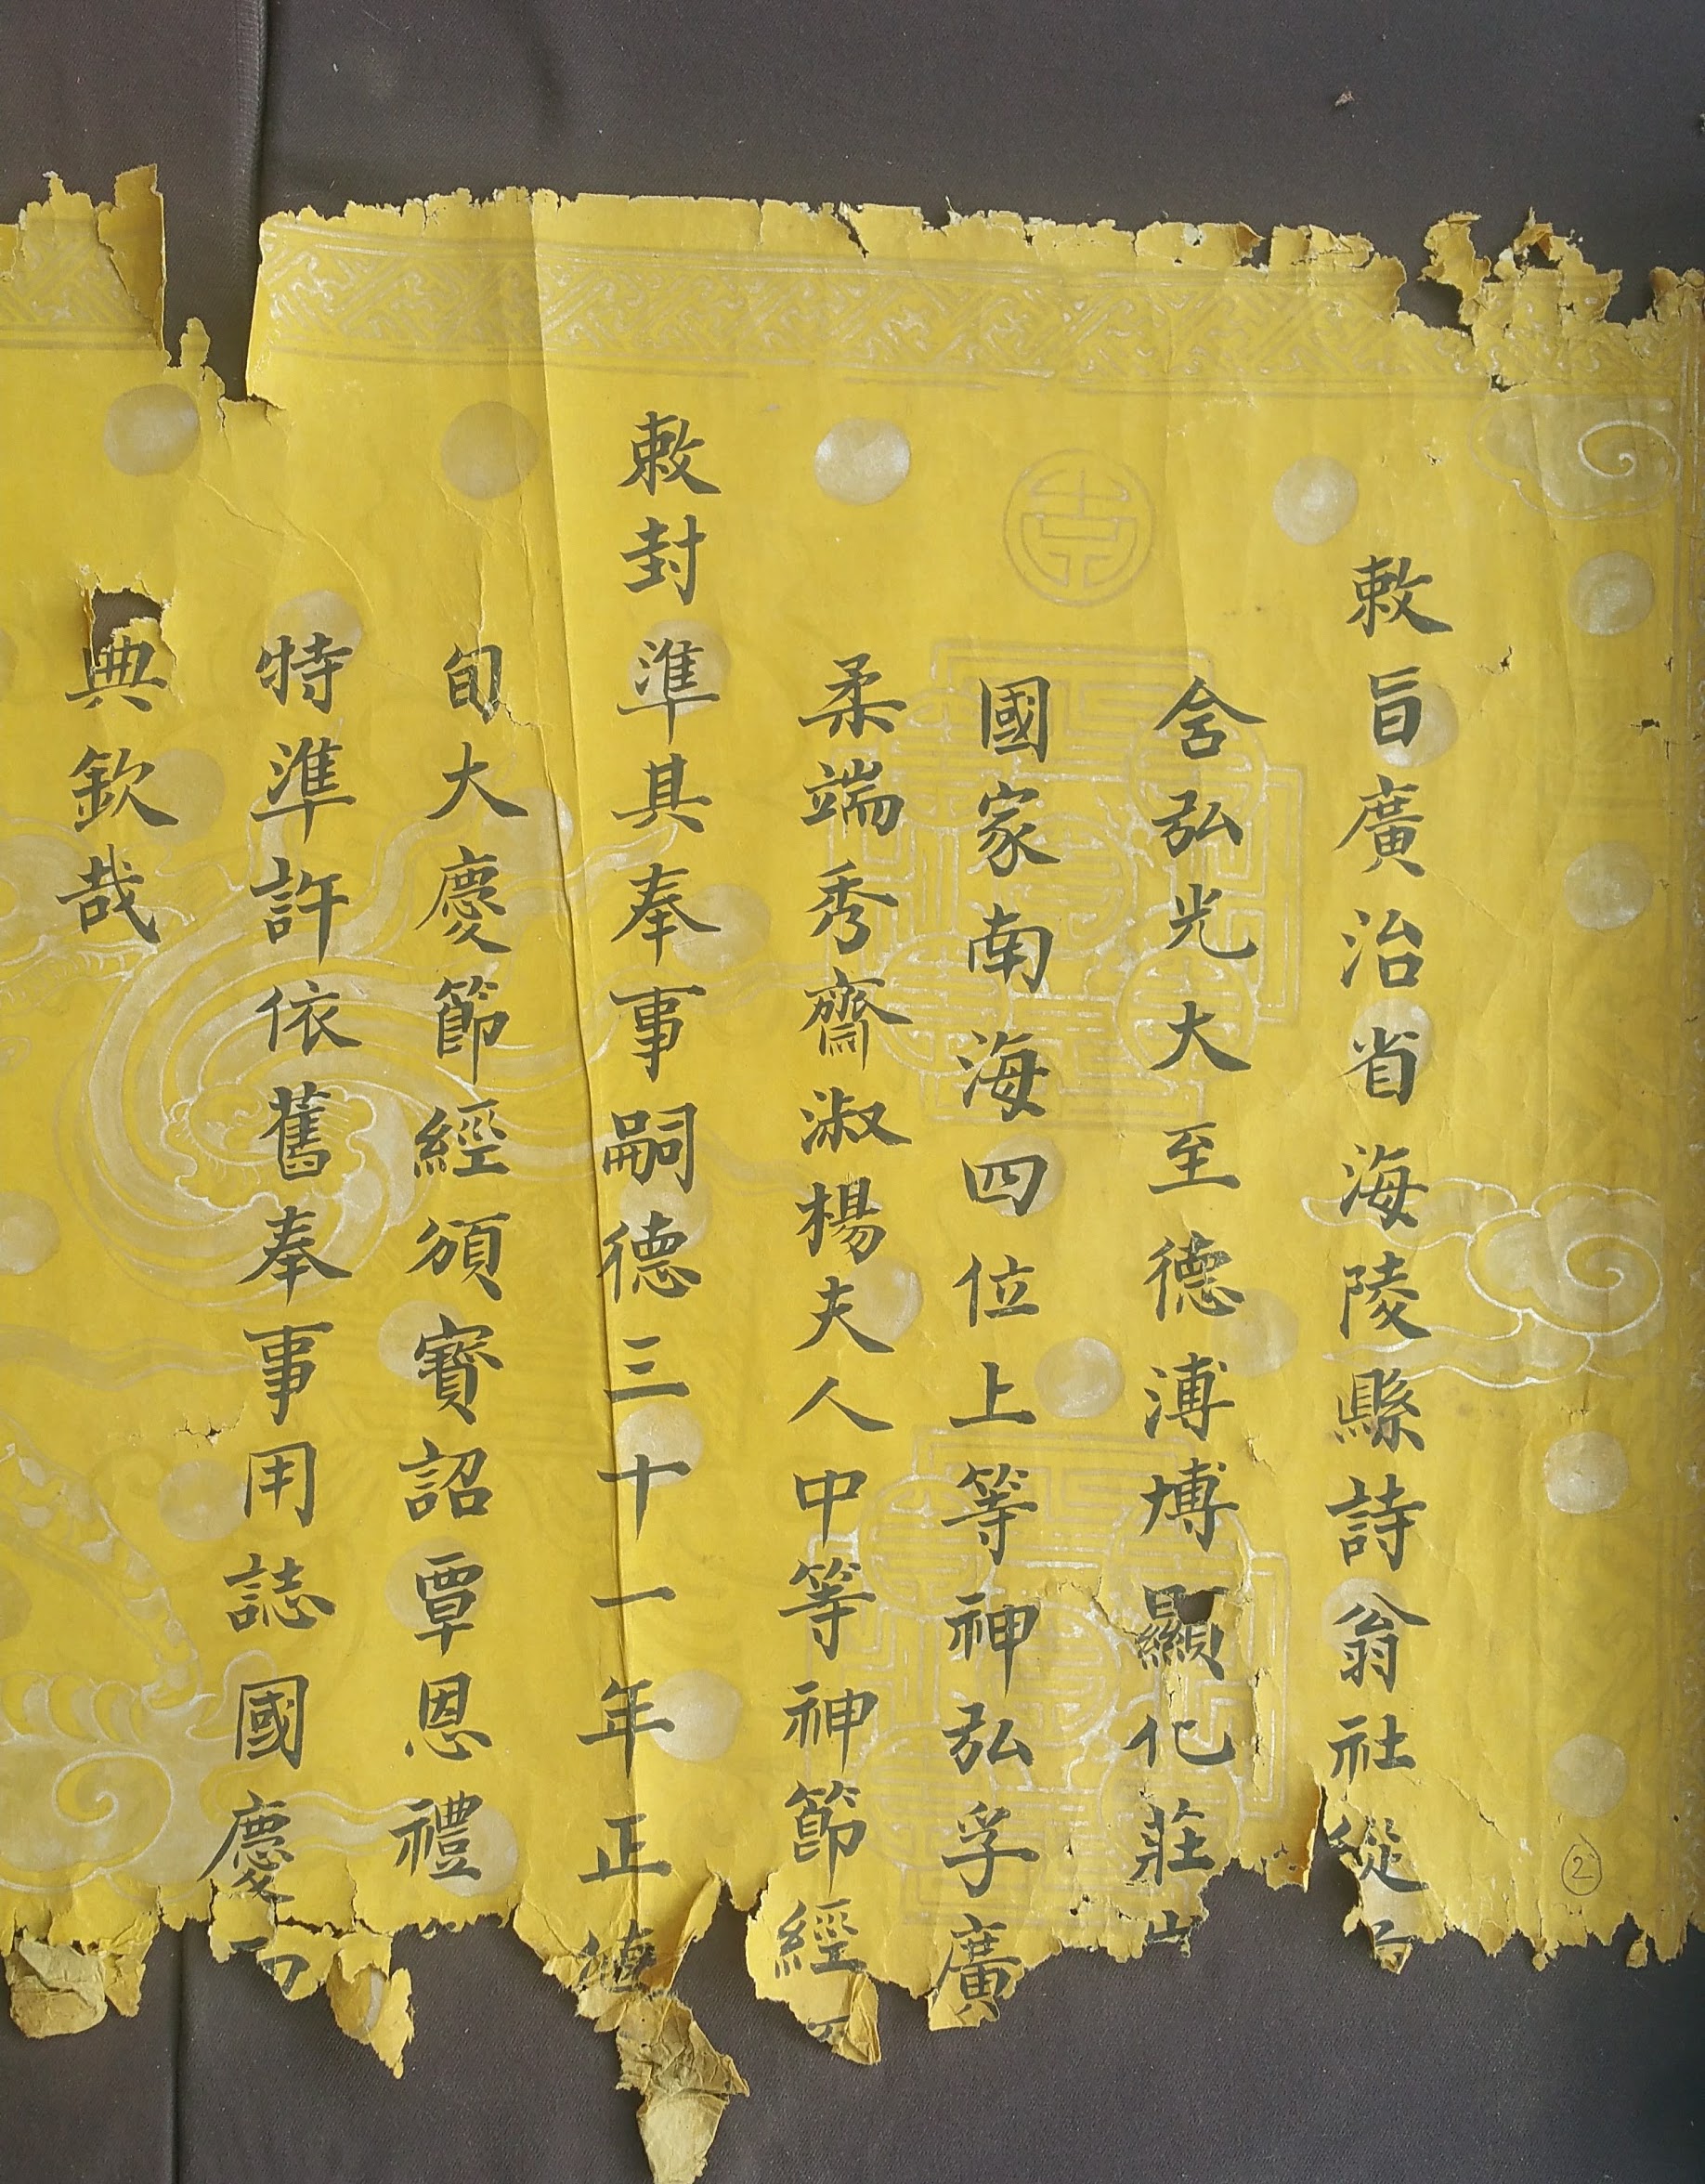 敕旨廣治省海陵縣詩翁社從
含弘光大至德溥博顯化莊
國家南海四位上等神弘孚廣
柔端秀齋淑楊夫人中等神節經
敕封準具奉事嗣德三十一年正
旬大慶節經頒寶詔覃恩禮
特準許依舊奉事用誌國慶而
典欽哉
2